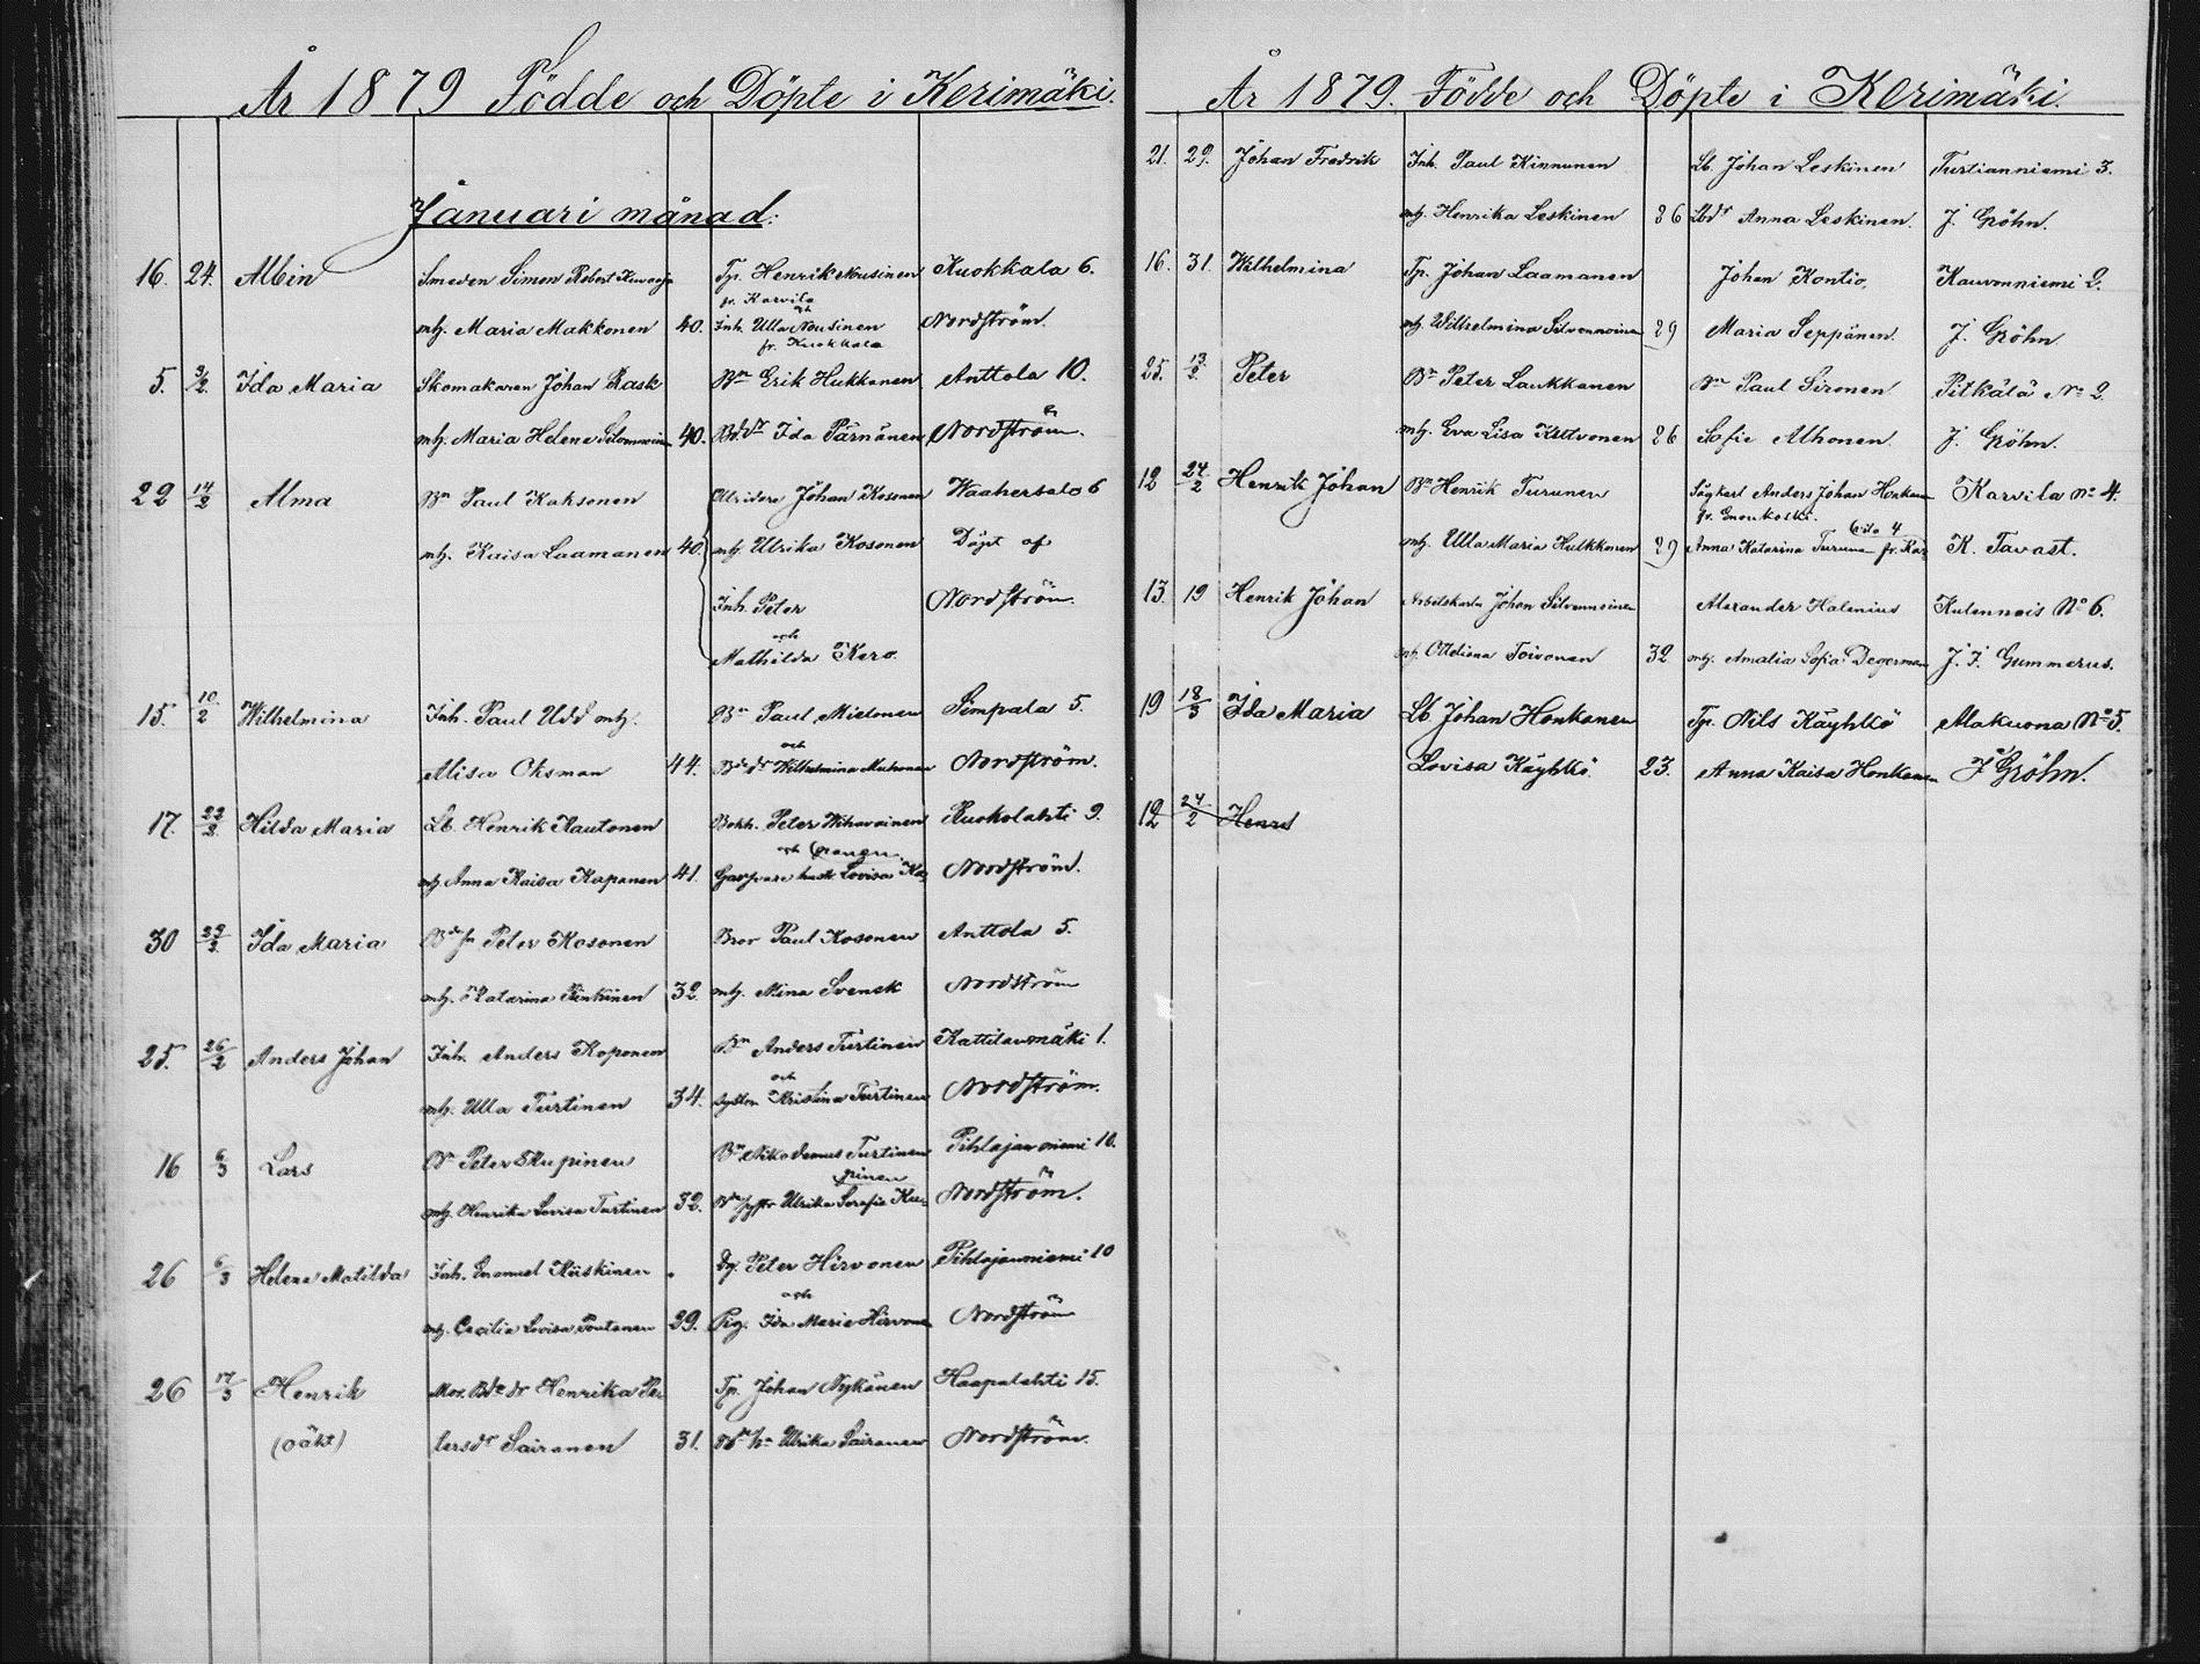 År 1879 Födde och Döpte i Kerimäki.
Januari månad.
16. 24. Albin Smeden Simon Robert Tp. Henrik Nousinen Kuokkala 6.
fr. Karvila
mh. Maria Makkonen 40. och Inh. Ulla Nousinen Nordström.
fr. Kuokkala
5. 3/2. Ida Maria Skomakaren Johan Rask Bn Erik Hukkanen Anttola 10.
mh. Maria Helena Silvennoinen 40. Bd.dr Ida Pärnänen Nordström.
22 14/2 Alma Bn Paul Kaksonen Johan Kosonen Waahersalo 6
mh. Kaisa Laamanen 40. mh. Ulrika Kosonen Döpt af
Inh. Peter Nordström.
och
Mathilda Kero.
15. 10./2 Wilhelmina Inh. Paul Udd mh. Bn Paul Mietonen Simpala 5.
och
Alisa Oksman 44. Bdedr Wilhelmina Muhonen Nordström.
17. 22/2. Hilda Maria Lb. Henrik Rautonen Bokh. Peter Wihavainen Ruokolahti 9.
och
mh. Anna Kaisa Kapanen 41. hustr. Lovisa Nordström.
30 Ida Maria Peter Kosonen Bror Paul Kosonen Anttola 5.
mh. Katarina Pinkinen 32. mh. Mina Svensk Nordström
25. 26/2 Anders Johan Inh. Anders Koponen Bn Anders Turtinen Kattilanmäki 1.
och
mh. Ulla Turtinen 34. syster Kristina Turtinen Nordström.
16 6/3 Lars Bn Peter Kupinen Bn Nikodemus Turtinen Pihlajanniemi 10.
pinen
mh. Henrika Lovisa Turtinen 32. Ulrika Serafia Ku= Nordström.
26 6/3 Helena Matilda Inh. Emanuel Räiskinen Dg. Peter Hirvonen Pihlajanniemi 10
och
mh. Cecilia Lovisa Pontanen 29. Pig. Ida Maria Hirvonen Nordström
26 17/3 Henrik Mor. Bde dr Henrika Pe= Tp. Johan Nykänen Haapalahti 15.
(oäkt) tersdr Sairanen 31. Ulrika Sairanen Nordström.
År 1879. Födde och Döpte i Kerimäki.
21. 29. Johan Fredrik Inh. Paul Kinnunen Lb. Johan Leskinen Turtianniemi 3.
mh. Henrika Leskinen 26 Lbdr Anna Leskinen. J. Gröhn.
16. 31. Wilhelmina Tp. Johan Laamanen Johan Kontio, Kauvonniemi 2.
mh. Wilhelmina Silvennoinen 29 Maria Seppänen. J. Gröhn
25. 13./2. Peter Bn Peter Laukkanen Bn Paul Sironen Pitkälä No 2.
mh. Eva Lisa Kettvonen 26 Sofie Alhonen. J. Gröhn.
12 24/2 Henrik Johan Bn Henrik Turunen Sågkarl Anders Johan Honkanen Karvila no 4.
fr. Enonkoski.
vila 4
mh. Ulla Maria Hulkkonen 29 Anna Katarina Turunen fr. Kar= K. Tavast.
13. 19 Henrik Johan Arbetskarln Johan Silvennoinen Alexander Halenius Kulennois No 6.
mh. Ottiliana Toivonen 32 mh. Amalia Sofia Degerman J. F. Gummerus.
19 18/3 Ida Maria Lb. Johan Honkanen Tp. Nils Käyhkö Makuona No 5.
Lovisa Käyhkö. 23. Anna Kaisa Honkanen J Gröhn.
12 24/2 Henrik